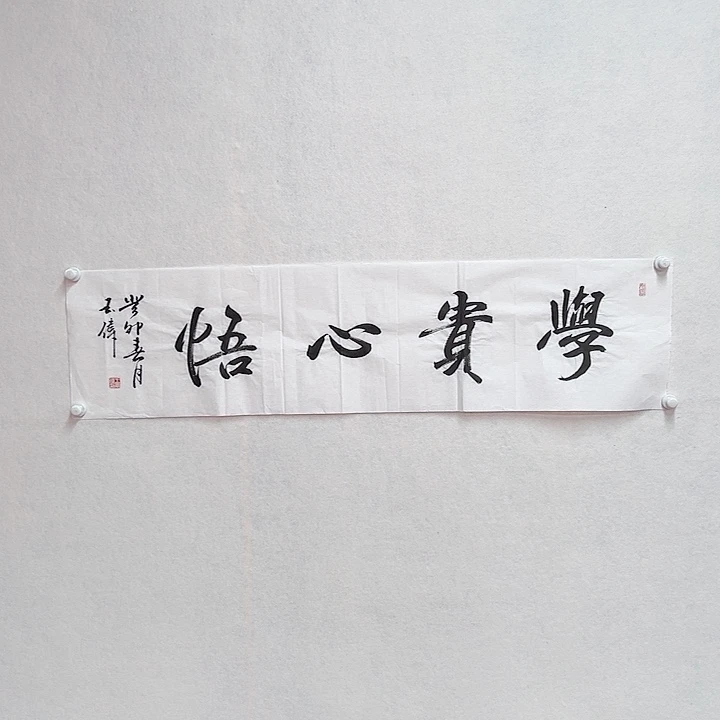 學貴心悟
癸卯春月
玉偉